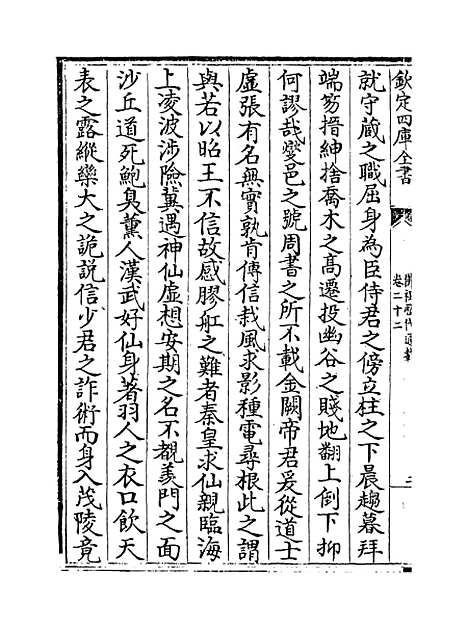 欽定四庫全書
佛祖歷代通載
卷二十二
就守蔵之職屈身為臣侍君之傍立柱之下晨趨暮拜
端笏搢紳捨喬木之髙遷投幽谷之賤地翻上倒下抑
何謬㢤䕫邑之號周書之所不載金闕帝君爰從道士
虚張有名無實孰肯傳信栽風求影種電尋根此之謂
與若以昭王不信故感膠舡之難者秦皇求仙親臨海
上凌波渉險冀遇神仙虚想安期之名不覩羡門之面
沙丘道死鮑臭薫人漢武好仙身著羽人之衣口飲天
表之露縱欒大之詭説信少君之詐術而身入茂陵竟